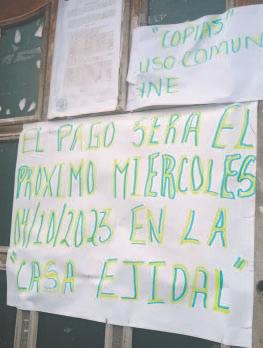 "COPIAS"
USO COMUN
INE
EL PAGO SERA EL
PROXIMO MIERCOLES
04/10/2023 EN LA
"CASA EJIDAL"